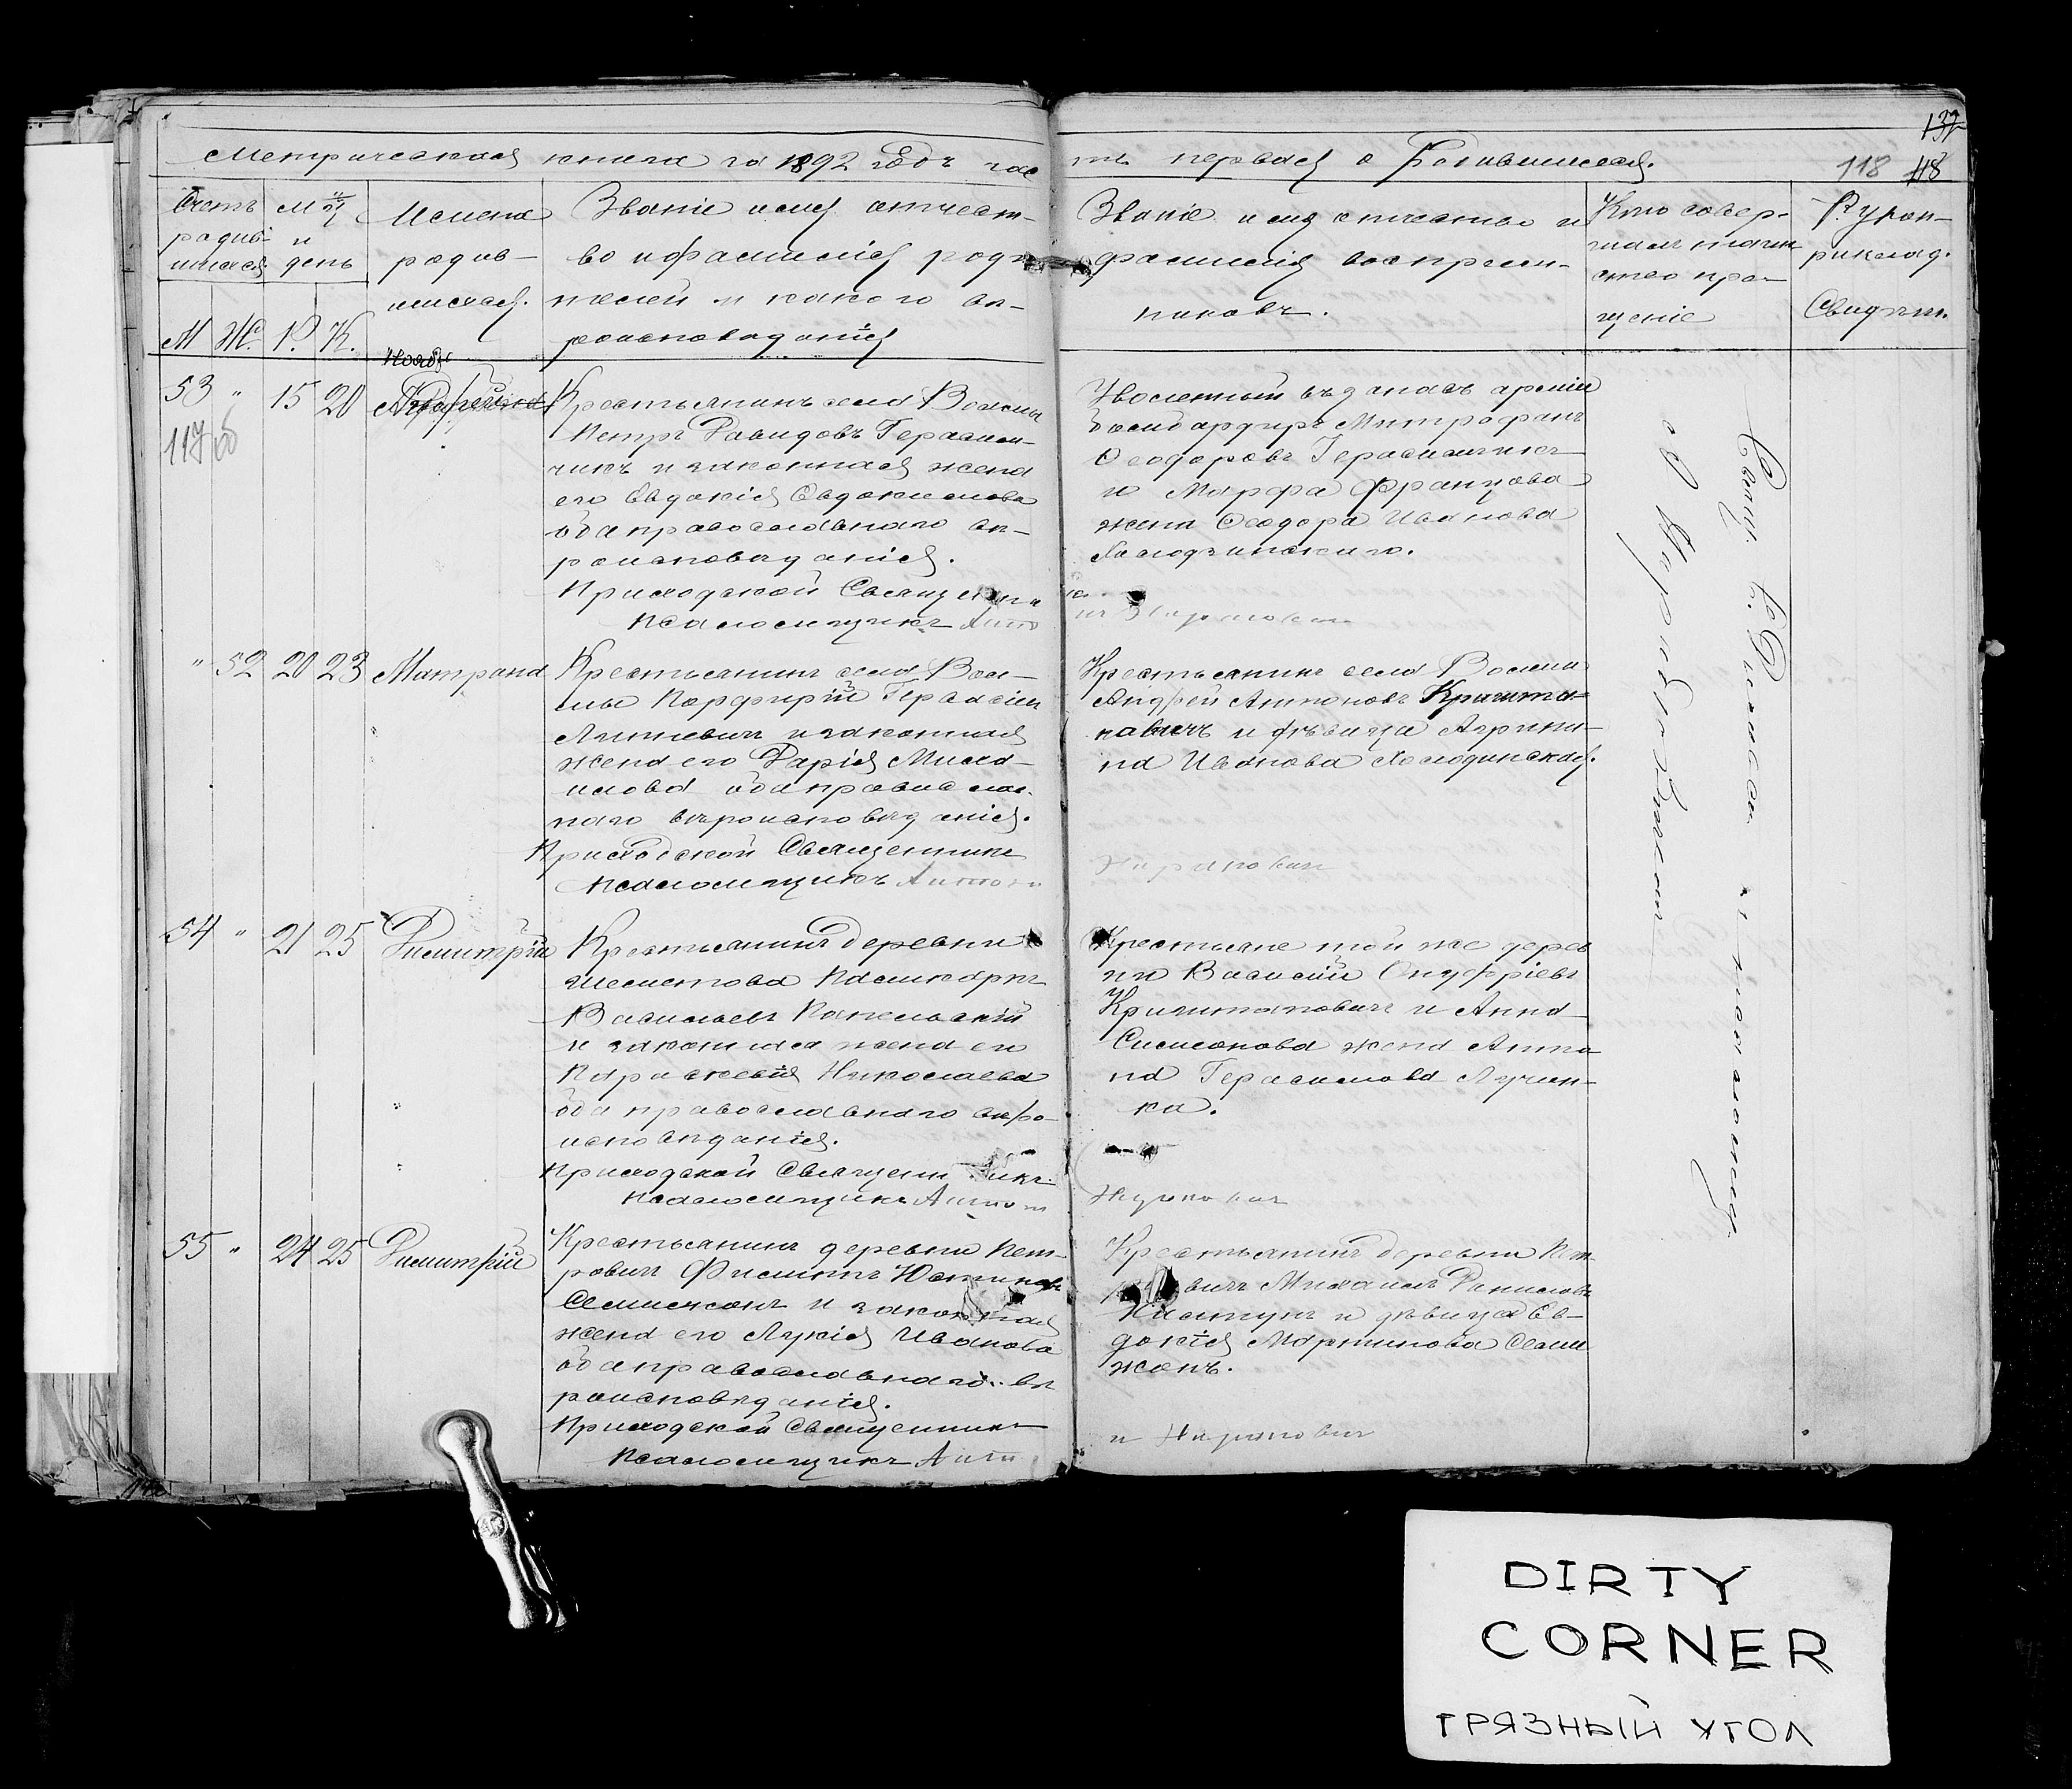 Метрическая книга за 1892 годъ часть первая о Родившихся.
137
118 118
Счетъ родив-
шихся.
М Ж.
М-цъ
и
день
Р. К.
Имена
родив-
шихся.
Званіе имя отчест-
во и фамилія роди
телей и какого вѣ-
роисповѣданія
Званіе имя отчество и
фамилія воспріем-
никовъ.
Кто совер-
шалъ таин
ство кре-
щенія
Рукоп-
риклад.
Свидѣт.
Ноябр
53 " 15 20
117 об
Крестьянинъ села Волмы
Петръ Давидовъ Герасим-
чикъ и законная жена
его Евдокія Евдокимова
оба православнаго вѣ-
роисповѣданія.
Приходской Священникъ
Псаломщикъ
Уволенный въ запасъ арміи
бомбардиръ Митрофанъ
Ѳеодоровъ Герасимчикъ
и Марфа Францова
жена Ѳеодора Иванова
Холодзинскаго.
" 52 20 23 Матрона
Крестьянинъ села Вол-
мы Порфирій Герасим
Литкевичъ и законная
жена его Дарія Миха-
илова оба православ
наго вѣроисповѣданія.
Приходской Священникъ
Псаломщикъ Антони
Крестьянинъ села Волмы
Андрей Антоновъ Криштa-
новичъ и дѣвица Агрипи-
на Иванова Холодинская.
54 " 21 25 Димитрій
Крестьянинъ деревни
Васильевъ
и законная жена его
Параскевія Николаева
оба православнаго вѣро-
исповѣданія.
Приходской Священникъ
Псаломщикъ Антон
Крестьяне той же дерев
ни Василій Онуфріевъ
Криштановичъ и Анна
Симеонова жена Анто
на Герасимова Лучен-
ка.
55 " 24 25 Димитрій
Крестьянинъ деревни Пет-
ровичъ Филиппъ Юстиновъ
Семижонъ и законная
жена его Лукія Иванова
оба православнаго вѣ
роисповѣданія.
Приходской Священникъ
Псаломщикъ Антон
Крестьянинъ деревни Пет
ровичъ Михаилъ Даниловъ
и дѣвица Ев-
докія Мартинова Семи
жонъ.
Свящ. съ псаломщ.
DIRTY
CORNER
ГРЯЗНЫЙ УГОЛ